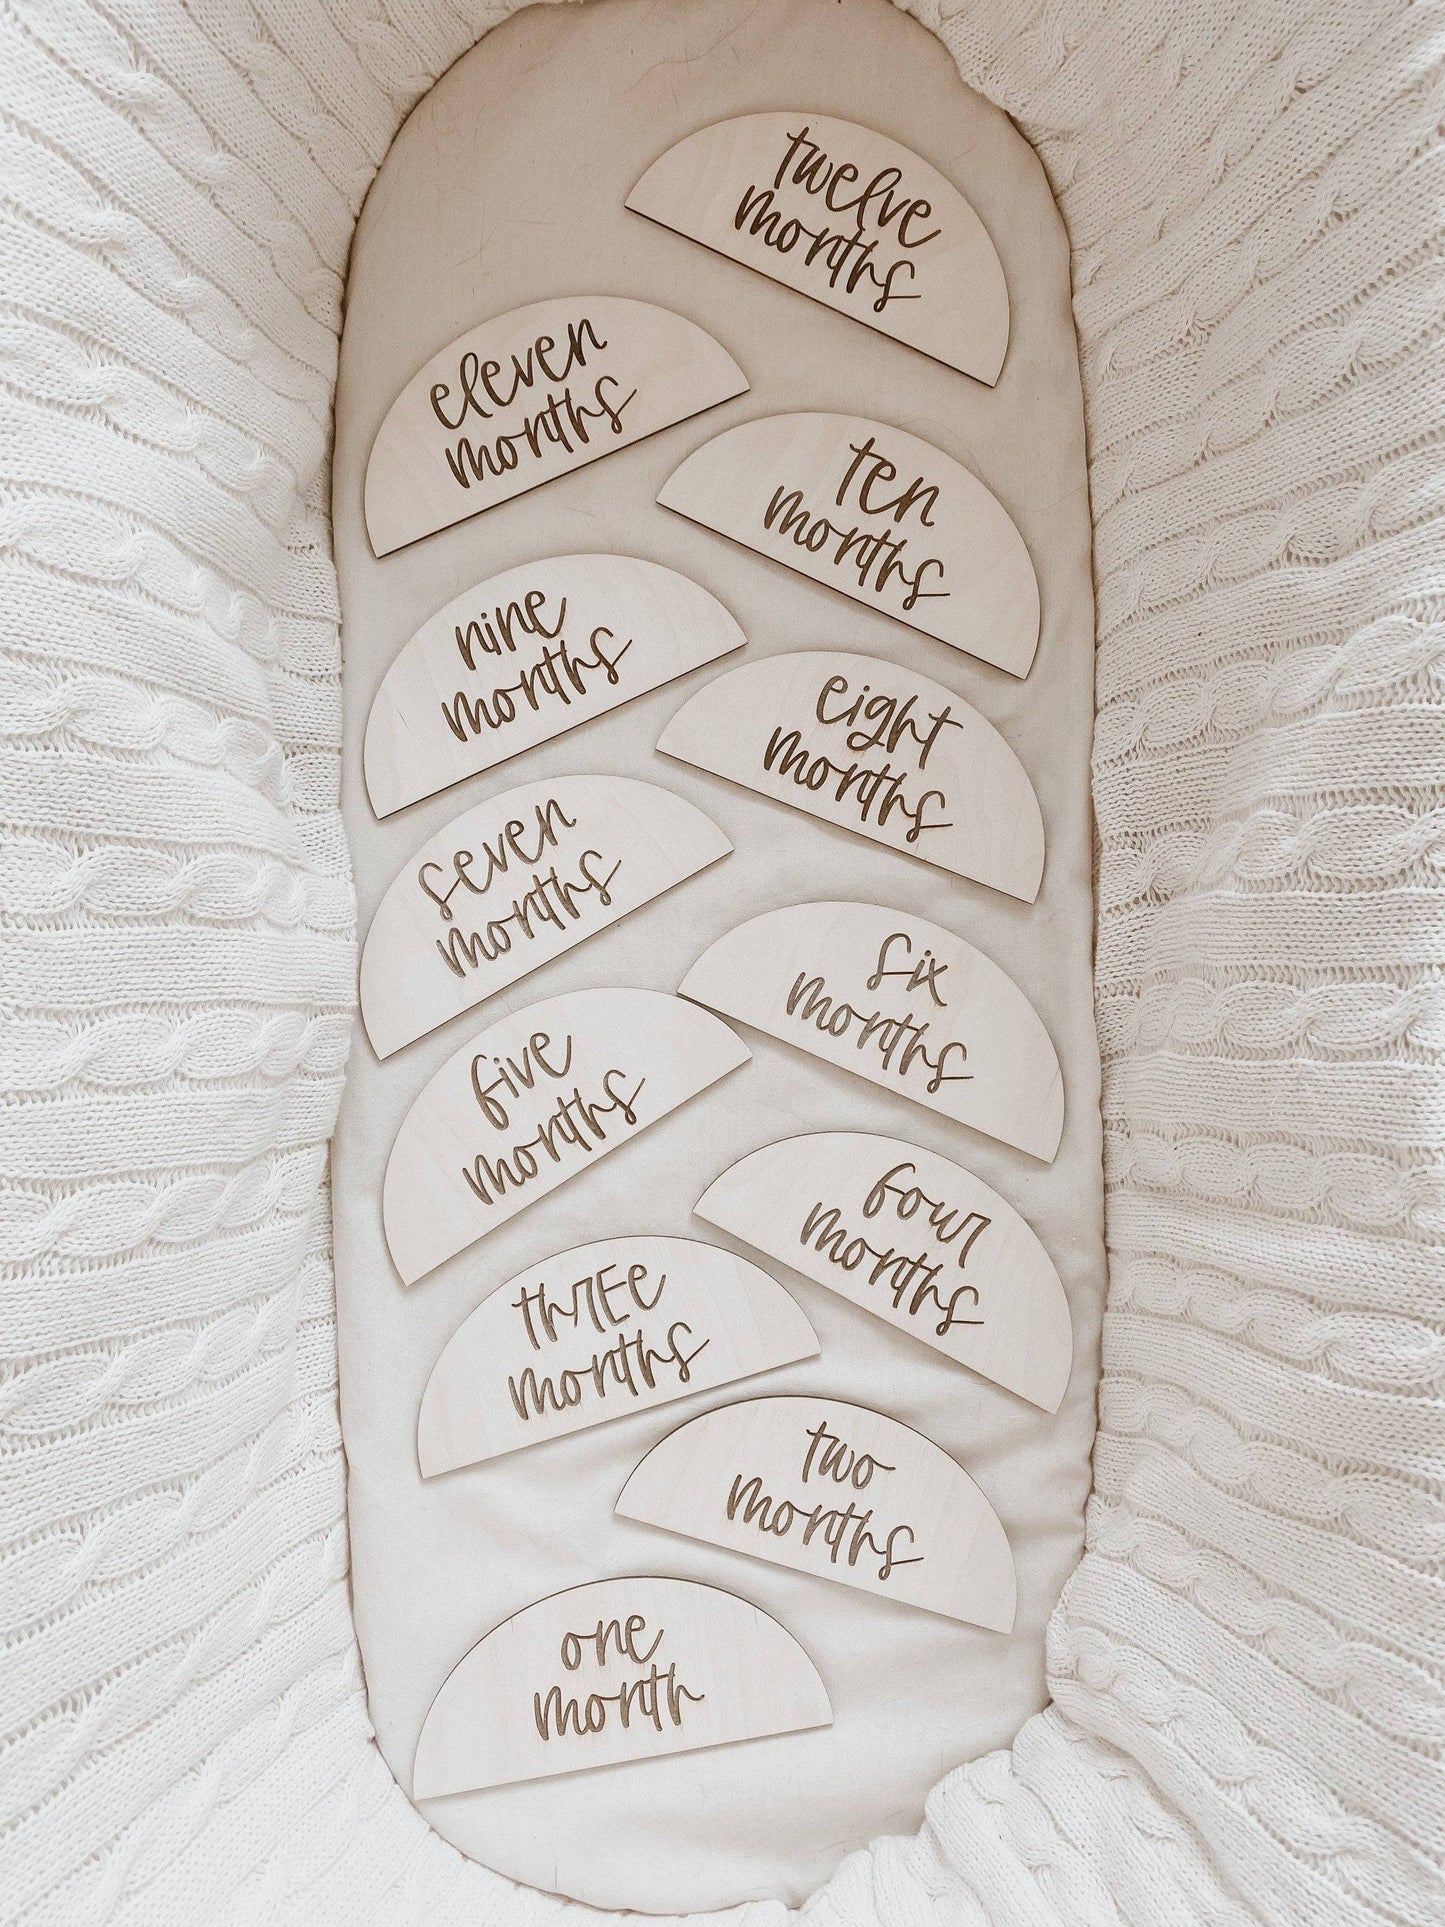 twelve
months
eleven
months
ten
months
nine
months
eight
months
seven
months
six
months
five
months
four
months
thrEe
months
two
months
one
month